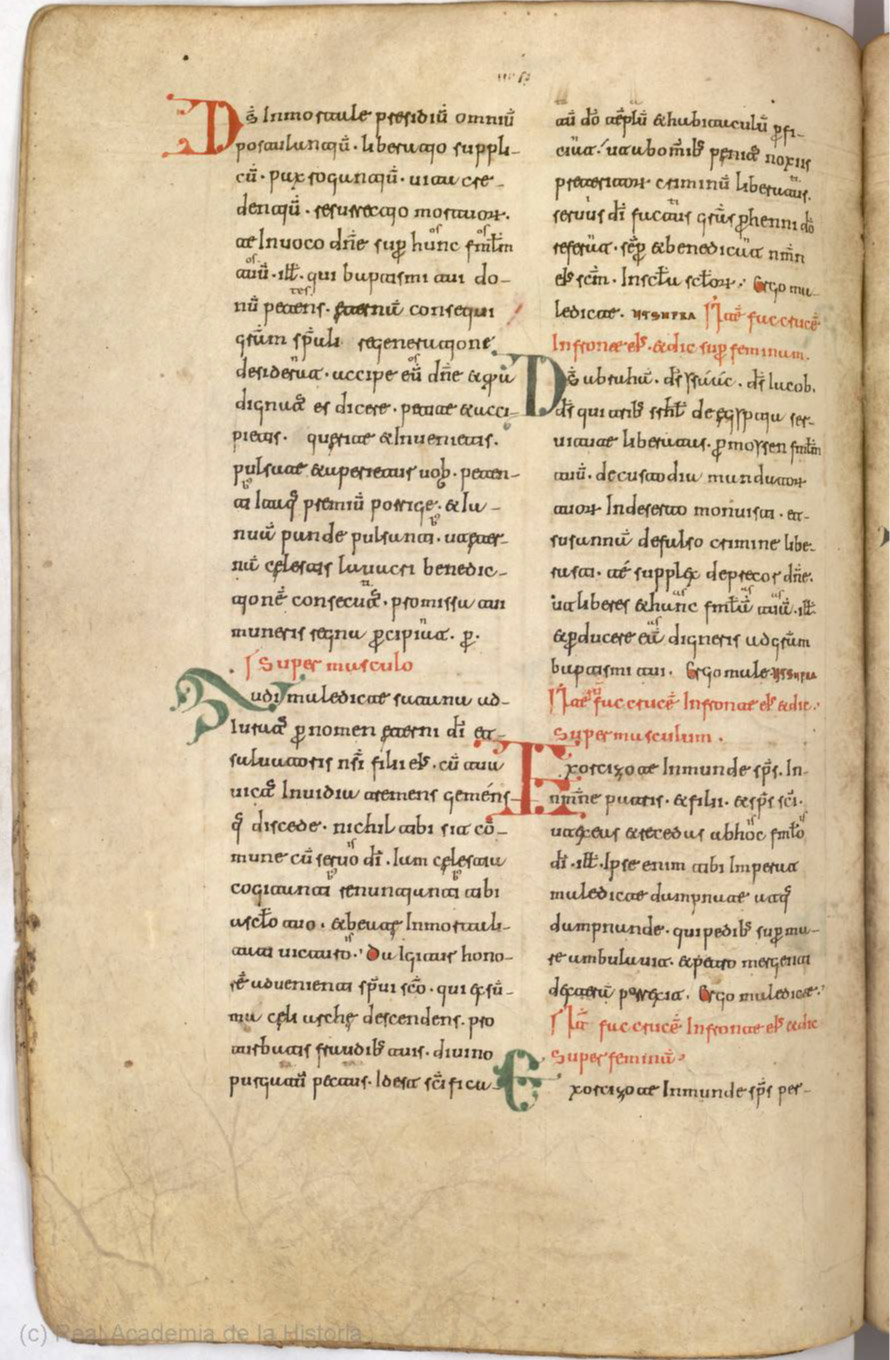 Ds̄ Inmortale presidiū omniū
postulantiū · liberatio suppli-
cū · pax rogantiū · uita cre-
dentiū · resurrectio mortuor̄.
te Inuoco dn̄e sup̄ hunc fm̄lm
tuū · ill̄. qui baptismi tui do-
nū petens. eternū consequi
gr̄am sp̄uli regeneratione
desiderat · accipe eū dn̄e & quia
dignatus es dicere · petite & acci-
pietis · querite & Inuenietis.
pulsate & aperietur uob. peten-
ti itaq; premiū porrige · & Ia-
nuā pande pulsanti · ut eter-
nā celestis lauacri benedic-
tionē consecutus · promissa tui
muneris regna percipiat. p̄.
Super masculo
Audi maledicte satana ad-
iuratus p̄ nomen eterni dī et
saluatoris nsī filii eīs · cū tua
uictus Inuidia tremens gemens
q̄ discede · nichil tibi sit cō-
mune cū seruo dī · Iam celestia
cogitanti renuntianti tibi
ac scłō tuo · & beate Inmortali-
tati uicturo · Da Igitur hono-
rē aduenienti sp̄ui scō · qui ex sū-
ma celi arche descendens. pro
turbatis fraudib; tuis · diuino
purgatū pectus. Idest scīficа-
tū dō tēplū & habitaculū perfi-
ciat · ut ab omīb; penitus noxiis
preteritor̄ criminū liberatus.
seruus dī factus gr̄as perhenni dō
referat · sēp & benedicat nm̄n
eīs scm̄ · In scłā scłor̄ · Ergo ma-
ledicte. ut supra Item fac crucē
In fronte eīs · & dic sup̄ feminam.
Ds̄ abraham · ds̄ Isaac · ds̄ Iacob.
ds̄ qui trib; isrl̄ de egiptia ser-
uitute liberatis · p̄ mossen fm̄lm
tuū · de custodia mandator̄
tuor̄ In deserto monuisti · et
susannā de falso crimine libe-
rasti · te supplex deprecor dn̄e.
ut liberes & hanc fm̄lā tuā · ill̄
& perducere eā digneris ad gr̄am
baptismi tui · Ergo male ut supra
Item fac crucē In fronte eīs & dic ·
super masculum ·
Exorcizo te Inmunde sp̄s · In
nm̄ne patris · & filii · & sp̄s scī ·
ut exeas & recedas ab hoc fm̄lo
dī · ill̄. Ipse enim tibi Imperat
maledicte dampnate atq̄
dampnande · qui pedib; sup̄ ma-
re ambulauit · & petro mergenti
dexterā porrexit · Ergo maledicte ·
Itē fac crucē In fronte eīs & dic
super feminā ·
Exorcizo te Inmunde sp̄s per-
(c) Real Academia de la Historia